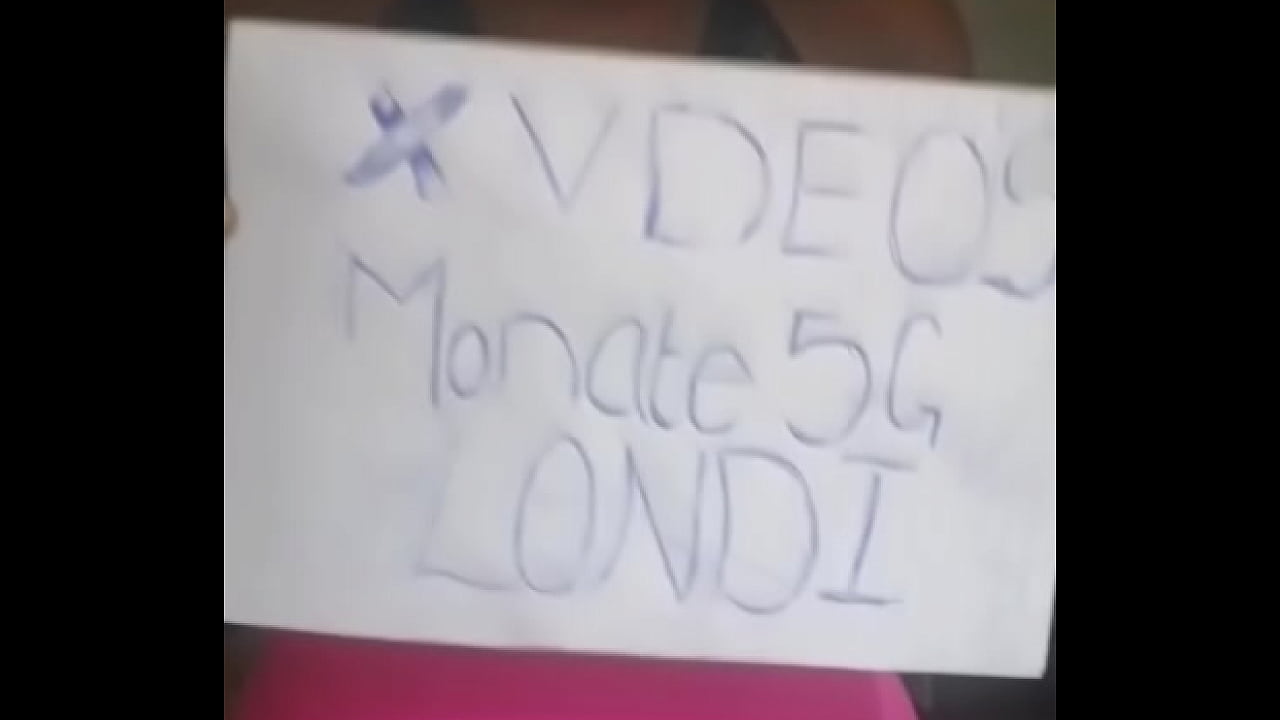 X VDEOS
Monate 5G
LONDI